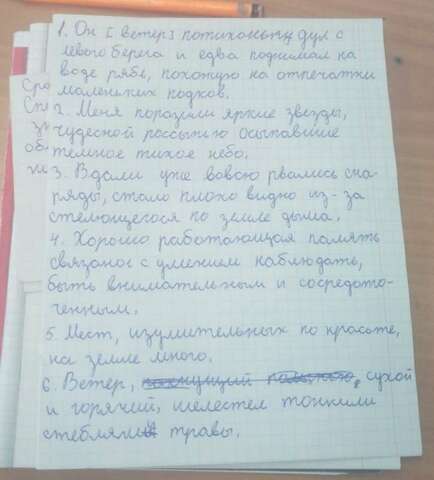 1. Он [ветер] потихоньку дул с
левого берега и едва поднимал на
воде рябь, похожую на отпечатки
маленьких подков.
2. Меня поразили яркие звезды,
чудесной россыпью осыпавшие
темное тихое небо.
3. Вдали уже вовсю рвались сна-
ряды, стало плохо видно из-за
стелющегося по земле дыма.
4. Хорошо работающая память
связаное с умением наблюдать,
быть внимательным и сосредото-
ченным.
5. Мест, изумительных по красоте,
на земле много.
6. Ветер, сухой
и горячий, шелестел тонкими
стеблями травы.